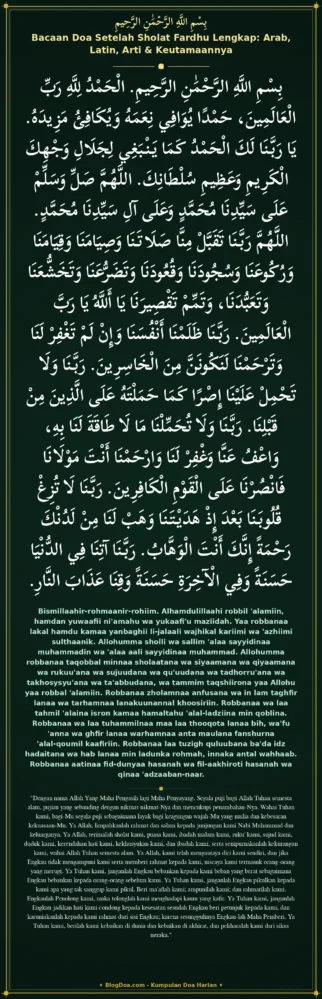 بِسْمِ اللَّهِ الرَّحْمَٰنِ الرَّحِيْمِ
Bacaan Doa Setelah Sholat Fardhu Lengkap: Arab,
Latin, Arti & Keutamaannya
بِسْمِ اللَّهِ الرَّحْمَٰنِ الرَّحِيمِ. الْحَمْدُ لِلَّهِ رَبِّ
الْعَالَمِينَ، حَمْدًا يُوَافِي نِعَمَهُ وَيُكَافِئُ مَزِيدَهُ.
يَا رَبَّنَا لَكَ الْحَمْدُ كَمَا يَنْبَغِي لِجَلَالِ وَجْهِكَ
الْكَرِيمِ وَعَظِيمِ سُلْطَانِكَ. اللَّهُمَّ صَلِّ وَسَلِّمْ
عَلَى سَيِّدِنَا مُحَمَّدٍ وَعَلَى آلِ سَيِّدِنَا مُحَمَّدٍ.
اللَّهُمَّ رَبَّنَا تَقَبَّلْ مِنَّا صَلَاتَنَا وَصِيَامَنَا وَقِيَامَنَا
وَرُكُوعَنَا وَسُجُودَنَا وَقُعُودَنَا وَتَضَرُّعَنَا وَتَخَشُّعَنَا
وَتَعَبُّدَنَا، وَتَمِّمْ تَقْصِيرَنَا يَا أَللَّهُ يَا رَبَّ
الْعَالَمِينَ. رَبَّنَا ظَلَمْنَا أَنْفُسَنَا وَإِنْ لَمْ تَغْفِرْ لَنَا
وَتَرْحَمْنَا لَنَكُونَنَّ مِنَ الْخَاسِرِينَ. رَبَّنَا وَلَا
تَحْمِلْ عَلَيْنَا إِصْرًا كَمَا حَمَلْتَهُ عَلَى الَّذِينَ مِنْ
قَبْلِنَا. رَبَّنَا وَلَا تُحَمِّلْنَا مَا لَا طَاقَةَ لَنَا بِهِ،
وَاعْفُ عَنَّا وَغْفِرْ لَنَا وَارْحَمْنَا أَنْتَ مَوْلَانَا
فَانْصُرْنَا عَلَى الْقَوْمِ الْكَافِرِينَ. رَبَّنَا لَا تُزِغْ
قُلُوبَنَا بَعْدَ إِذْ هَدَيْتَنَا وَهَبْ لَنَا مِنْ لَدُنْكَ
رَحْمَةً إِنَّكَ أَنْتَ الْوَهَّابُ. رَبَّنَا آتِنَا فِي الدُّنْيَا
حَسَنَةً وَفِي الْآخِرَةِ حَسَنَةً وَقِنَا عَذَابَ النَّارِ.
Bismillaahir-rohmaanir-rohiim. Alhamdulillaahi robbil 'alamiin,
hamdan yuwaafii ni'amahu wa yukaafi'u maziidah. Yaa robbanaa
lakal hamdu kamaa yanbaghii li-jalaali wajhikal kariimi wa 'azhiimi
sulthaanik. Allohumma sholli wa sallim 'alaa sayyidinaa
muhammadin wa 'alaa aali sayyidinaa muhammad. Allohumma
robbanaa taqobbal minnaa sholaatana wa siyaamana wa qiyaamana
wa rukuu'ana wa sujuudana wa qu'uudana wa tadhorru'ana wa
takhosysyu'ana wa ta'abbudana, wa tammim taqshiirona yaa Allohu
yaa robbal 'alamiin. Robbanaa zholamnaa anfusana wa in lam taghfir
lanaa wa tarhamnaa lanakuunannal khoosiriin. Robbanaa wa laa
tahmil 'alaina isron kamaa hamaltahu 'alal-ladziina min qoblina.
Robbanaa wa laa tuhammilnaa maa laa thooqota lanaa bih, wa'fu
'anna wa ghfir lanaa warhamnaa anta maulana fanshurna
'alal-qoumil kaafiriin. Robbanaa laa tuzigh quluubana ba'da idz
hadaitana wa hab lanaa min ladunka rohmah, innaka antal wahhaab.
Robbanaa aatinaa fid-dunyaa hasanah wa fil-aakhiroti hasanah wa
qinaa 'adzaaban-naar.
"Dengan nama Allah Yang Maha Pengasih lagi Maha Penyayang. Segala puji bagi Allah Tuhan semesta
alam, pujian yang sebanding dengan nikmat-nikmat-Nya dan mencukupi penambahan-Nya. Wahai Tuhan
kami, bagi-Mu segala puji sebagaimana layak bagi keagungan wajah-Mu yang mulia dan kebesaran
kekuasaan-Mu. Ya Allah, limpahkanlah rahmat dan salam kepada junjungan kami Nabi Muhammad dan
keluarganya. Ya Allah, terimalah sholat kami, puasa kami, ibadah malam kami, ruku' kami, sujud kami,
duduk kami, kerendahan hati kami, kekhusyukan kami, dan ibadah kami, serta sempurnakanlah kekurangan
kami, wahai Allah Tuhan semesta alam. Ya Allah, kami telah menganiaya diri kami sendiri, dan jika
Engkau tidak mengampuni kami serta memberi rahmat kepada kami, niscaya kami termasuk orang-orang
yang merugi. Ya Tuhan kami, janganlah Engkau bebankan kepada kami beban yang berat sebagaimana
Engkau bebankan kepada orang-orang sebelum kami. Ya Tuhan kami, janganlah Engkau pikulkan kepada
kami apa yang tak sanggup kami pikul. Beri ma'aflah kami; ampunilah kami; dan rahmatilah kami.
Engkaulah Penolong kami, maka tolonglah kami menghadapi kaum yang kafir. Ya Tuhan kami, janganlah
Engkau jadikan hati kami condong kepada kesesatan sesudah Engkau beri petunjuk kepada kami, dan
karuniakanlah kepada kami rahmat dari sisi Engkau; karena sesungguhnya Engkau-lah Maha Pemberi. Ya
Tuhan kami, berilah kami kebaikan di dunia dan kebaikan di akhirat, dan peliharalah kami dari siksa
neraka."
✦ BlogDoa.com - Kumpulan Doa Harian ✦